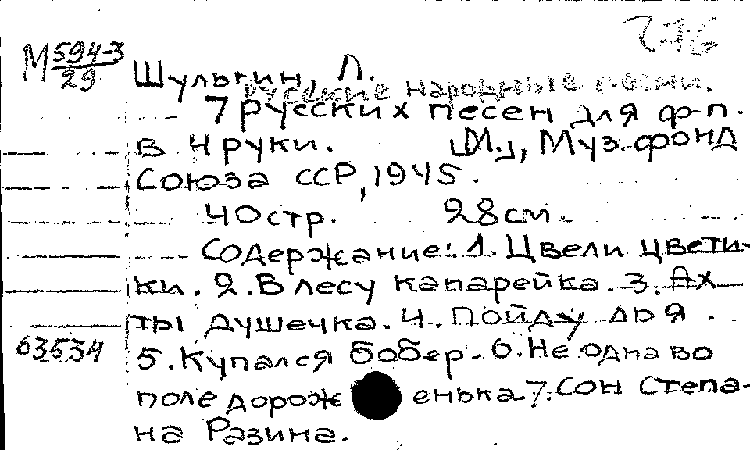 М 594-3
29
Шульгин, Л.
Русские народные песни.
7 русских песен для ф-п.
в 4 руки. [М.], Муз. фонд
Союза ССР, 1945.
40 стр. 28 см.
Содержание: 1. Цвели цвети-
ки. 2. В лесу канарейка. 3. Ах
ты душечка. 4. Пойду ль я.
5. Купался бобер. 6. Не одна во
поле дорож енька 7. Сон Степа-
63534
на Разина.